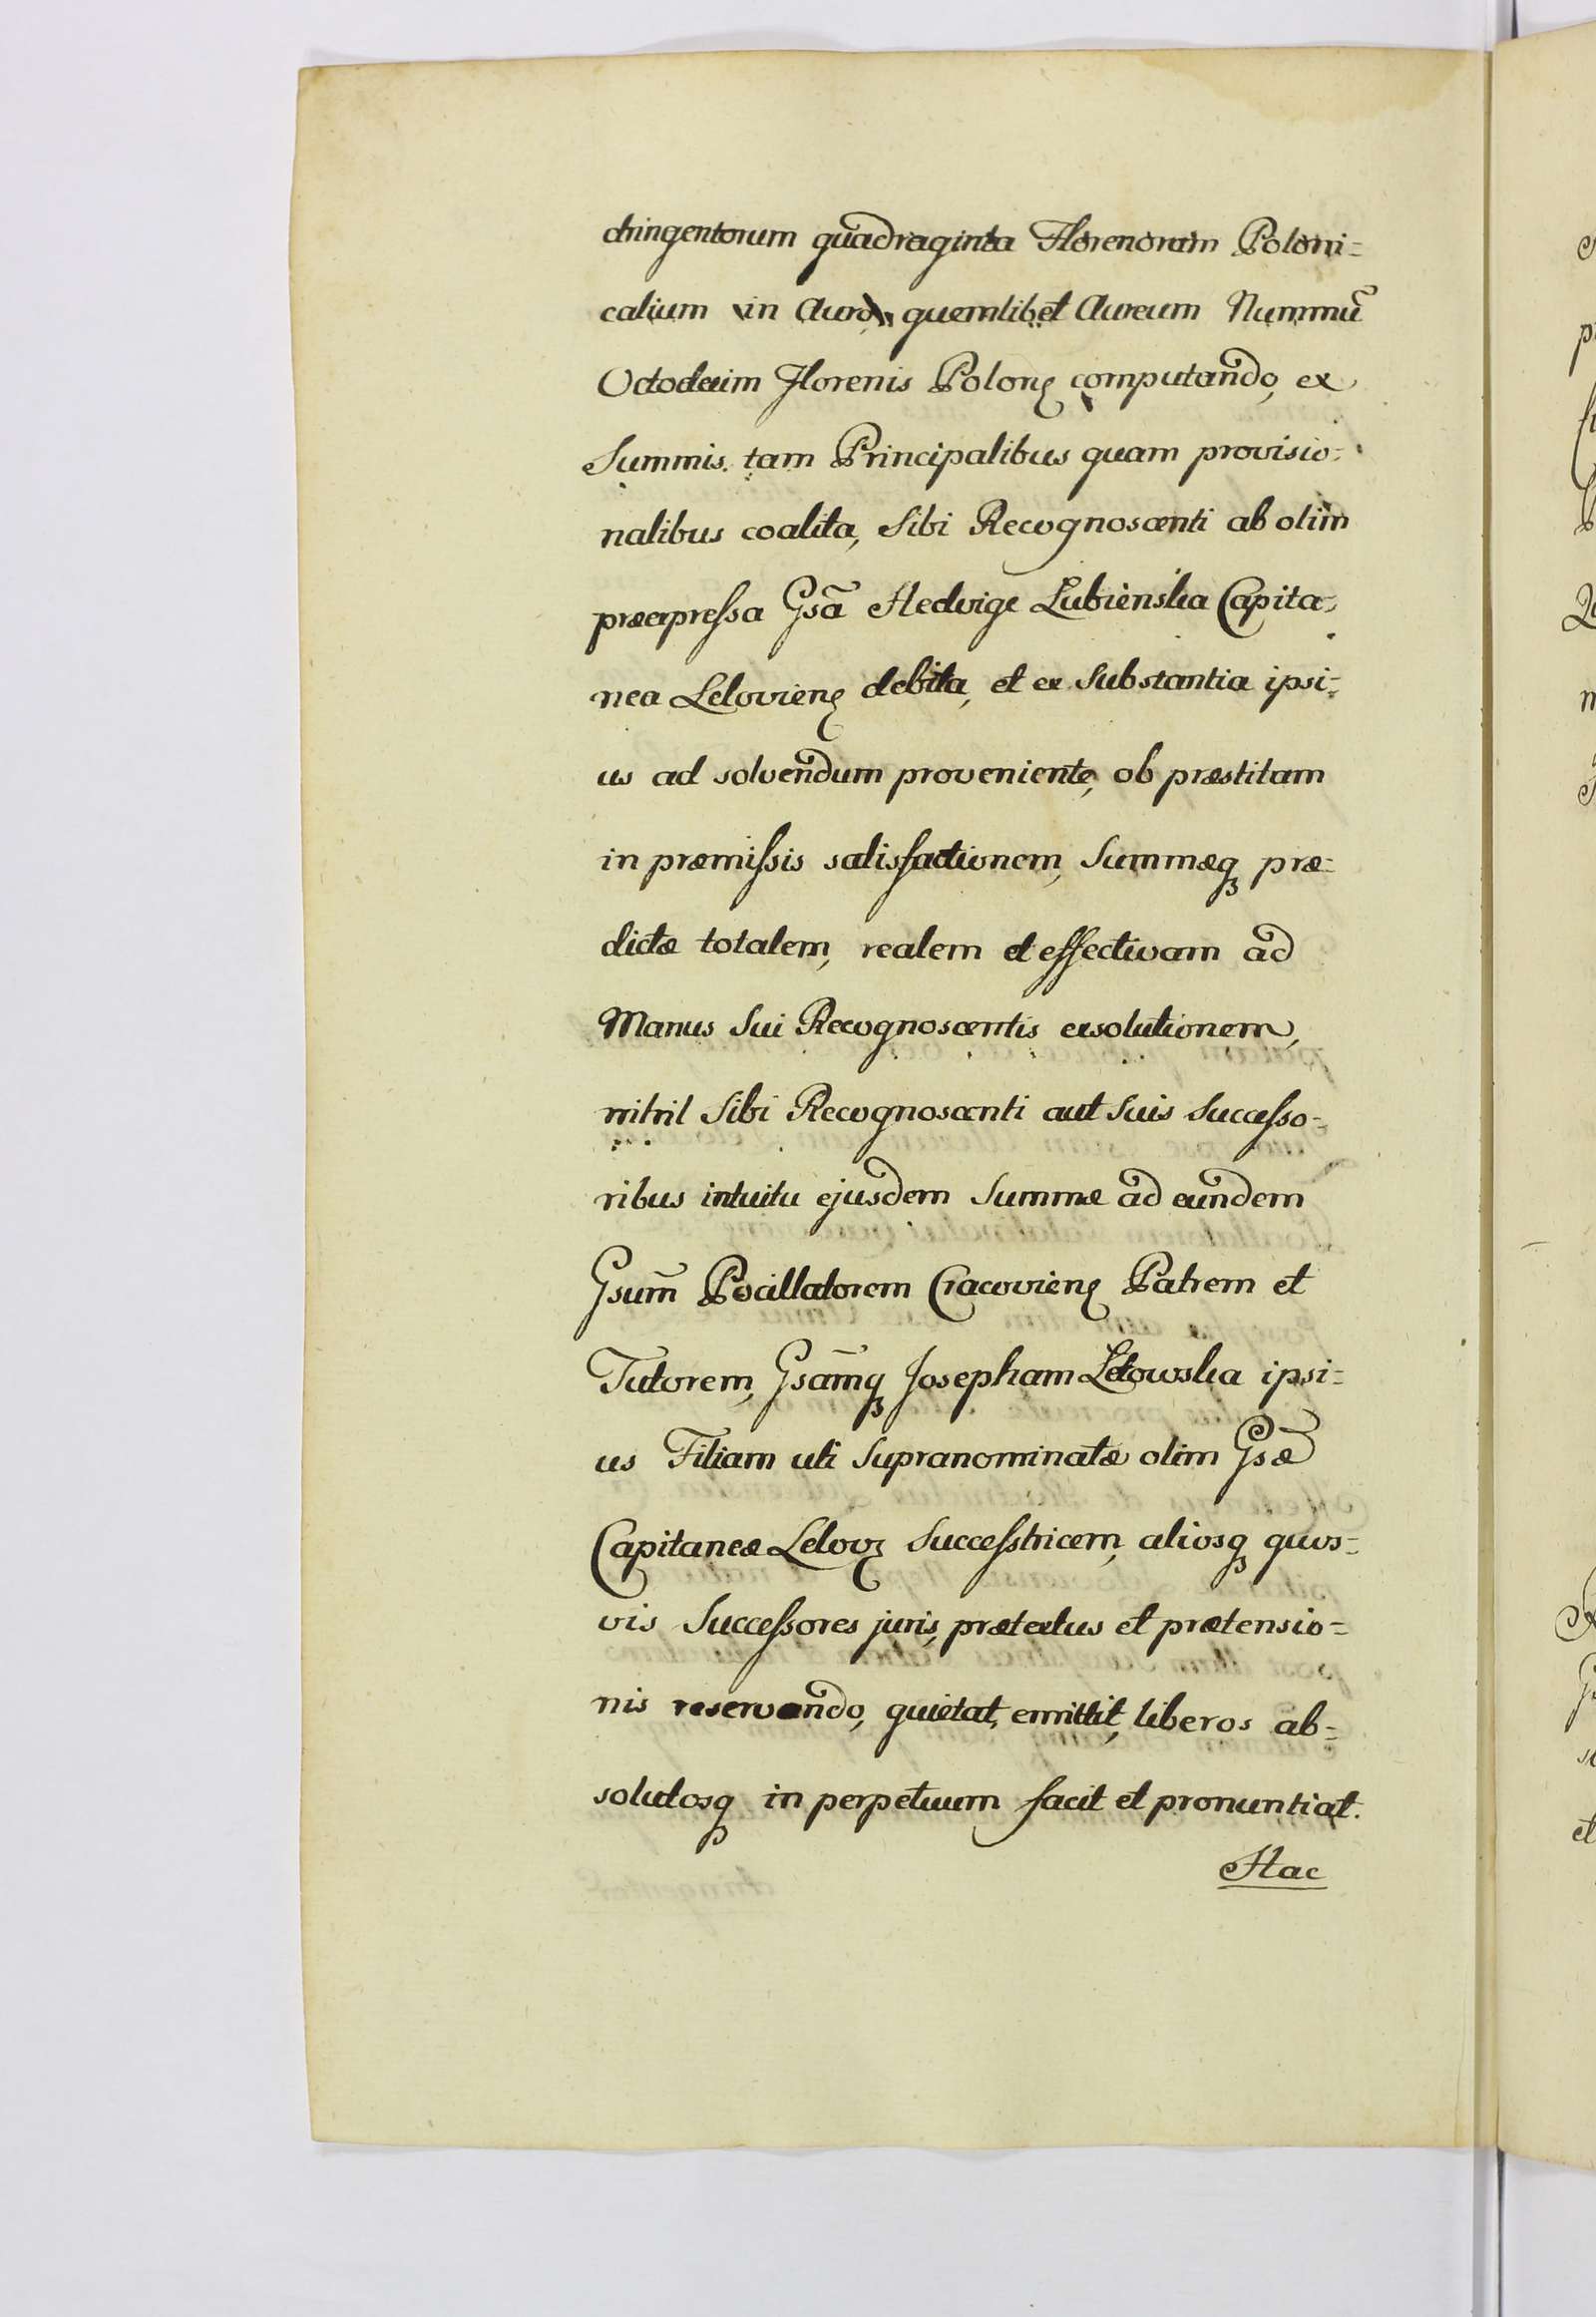 dringentorum quadraginta Florenorum Poloni=
calium in Auro, quemlibet Aureum Nummũ
Octodecim Florenis Polonę computando, ex
Summis tam Principalibus quam provisio=
nalibus coalita, Sibi Recognoscenti ab olim
præexpressa Gsã Hedvige Łubieńska Capita=
nea Leloviens debita, et ex Substantia ipsi=
us ad solvendum proveniente, ob præstitam
in præmissis satisfactionem, Summæq præ=
dictæ totalem, realem et effectivam ad
Manus Sui Recognoscentis exsolutionem,
nihil Sibi Recognoscenti aut Suis Successo=
ribus intuitu ejusdem Summæ ad eundem
Gsum̃ Pocillatorem Cracoviens Patrem et
Tutorem, Gsam̃q Josepham Łętowska ipsi=
us Filiam uti Supranominatæ olim Gsæ
Capitaneæ Lelov Successtricem, aliosq quos=
vis Successores juris, prætextus et prætensio=
nis reservando, quietat, emittit, liberos ab=
solutosq in perpetuum facit et pronuntiat.
Hac